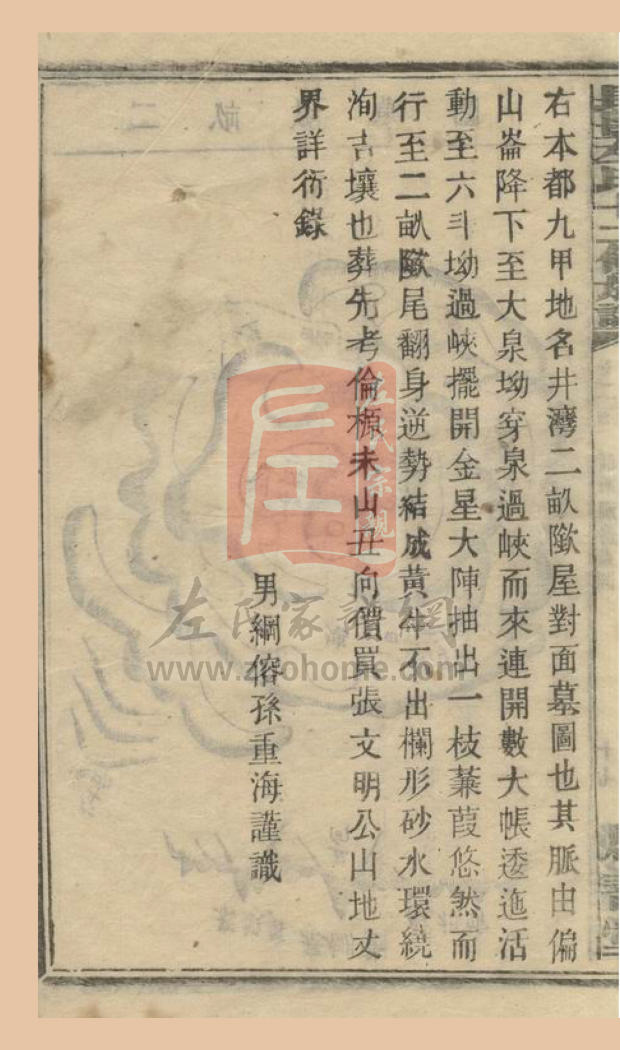 右本都九甲地名井灣二畝歛屋對面墓圖也其脈由偏
山崙降下至大泉坳穿泉過峽而來連開數大帳逶迤活
動至六斗坳過峽擺開金星大陣抽出一枝蒹葭悠然而
行至二畝歛尾翻身逆勢結成黃牛不出欄形砂水環繞
洵吉壤也葬先考倫槱未山丑向價買張文明公山地丈
界詳衍錄
男綱傛孫重海謹識
左氏宗親
左氏家譜網
www.zuohome.com